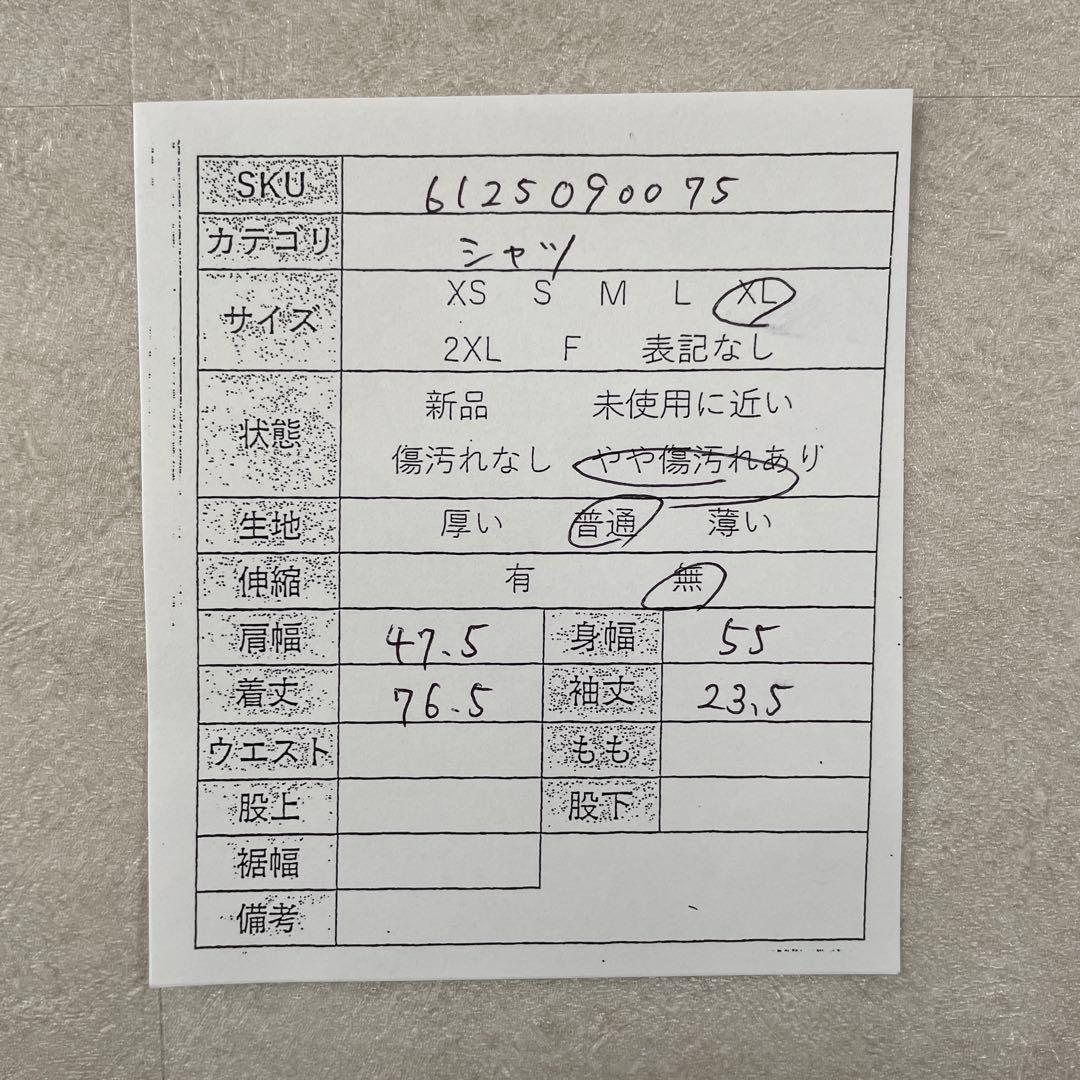 SKU 6125090075
カテゴリ シャツ
サイズ XS S M L XL
2XL F 表記なし
状態 新品 未使用に近い
傷汚れなし やや傷汚れあり
生地 厚い 普通 薄い
伸縮 有 無
肩幅 47.5 身幅 55
着丈 76.5 袖丈 23.5
ウエスト もも
股上 股下
裾幅
備考